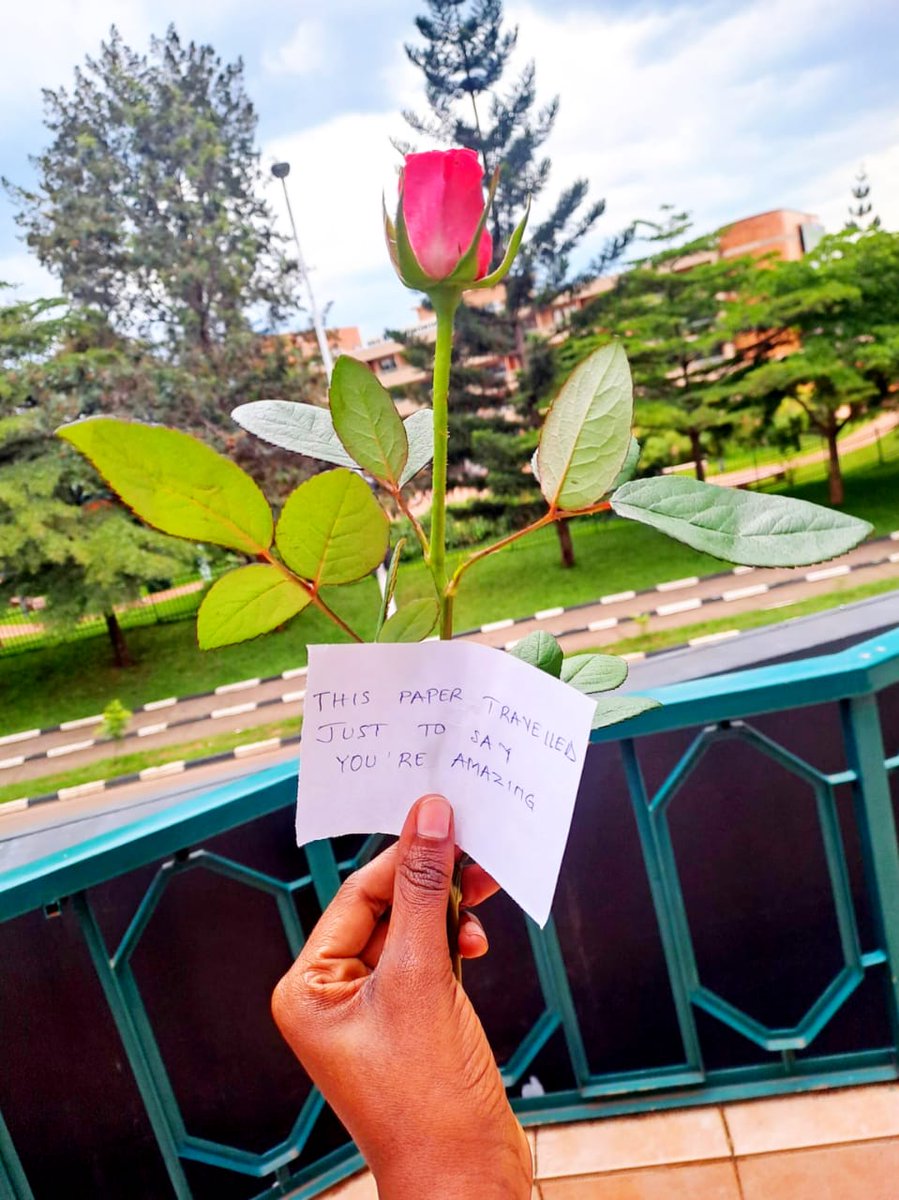 THIS PAPER TRAVELLED
JUST TO SAY
YOU'RE AMAZING